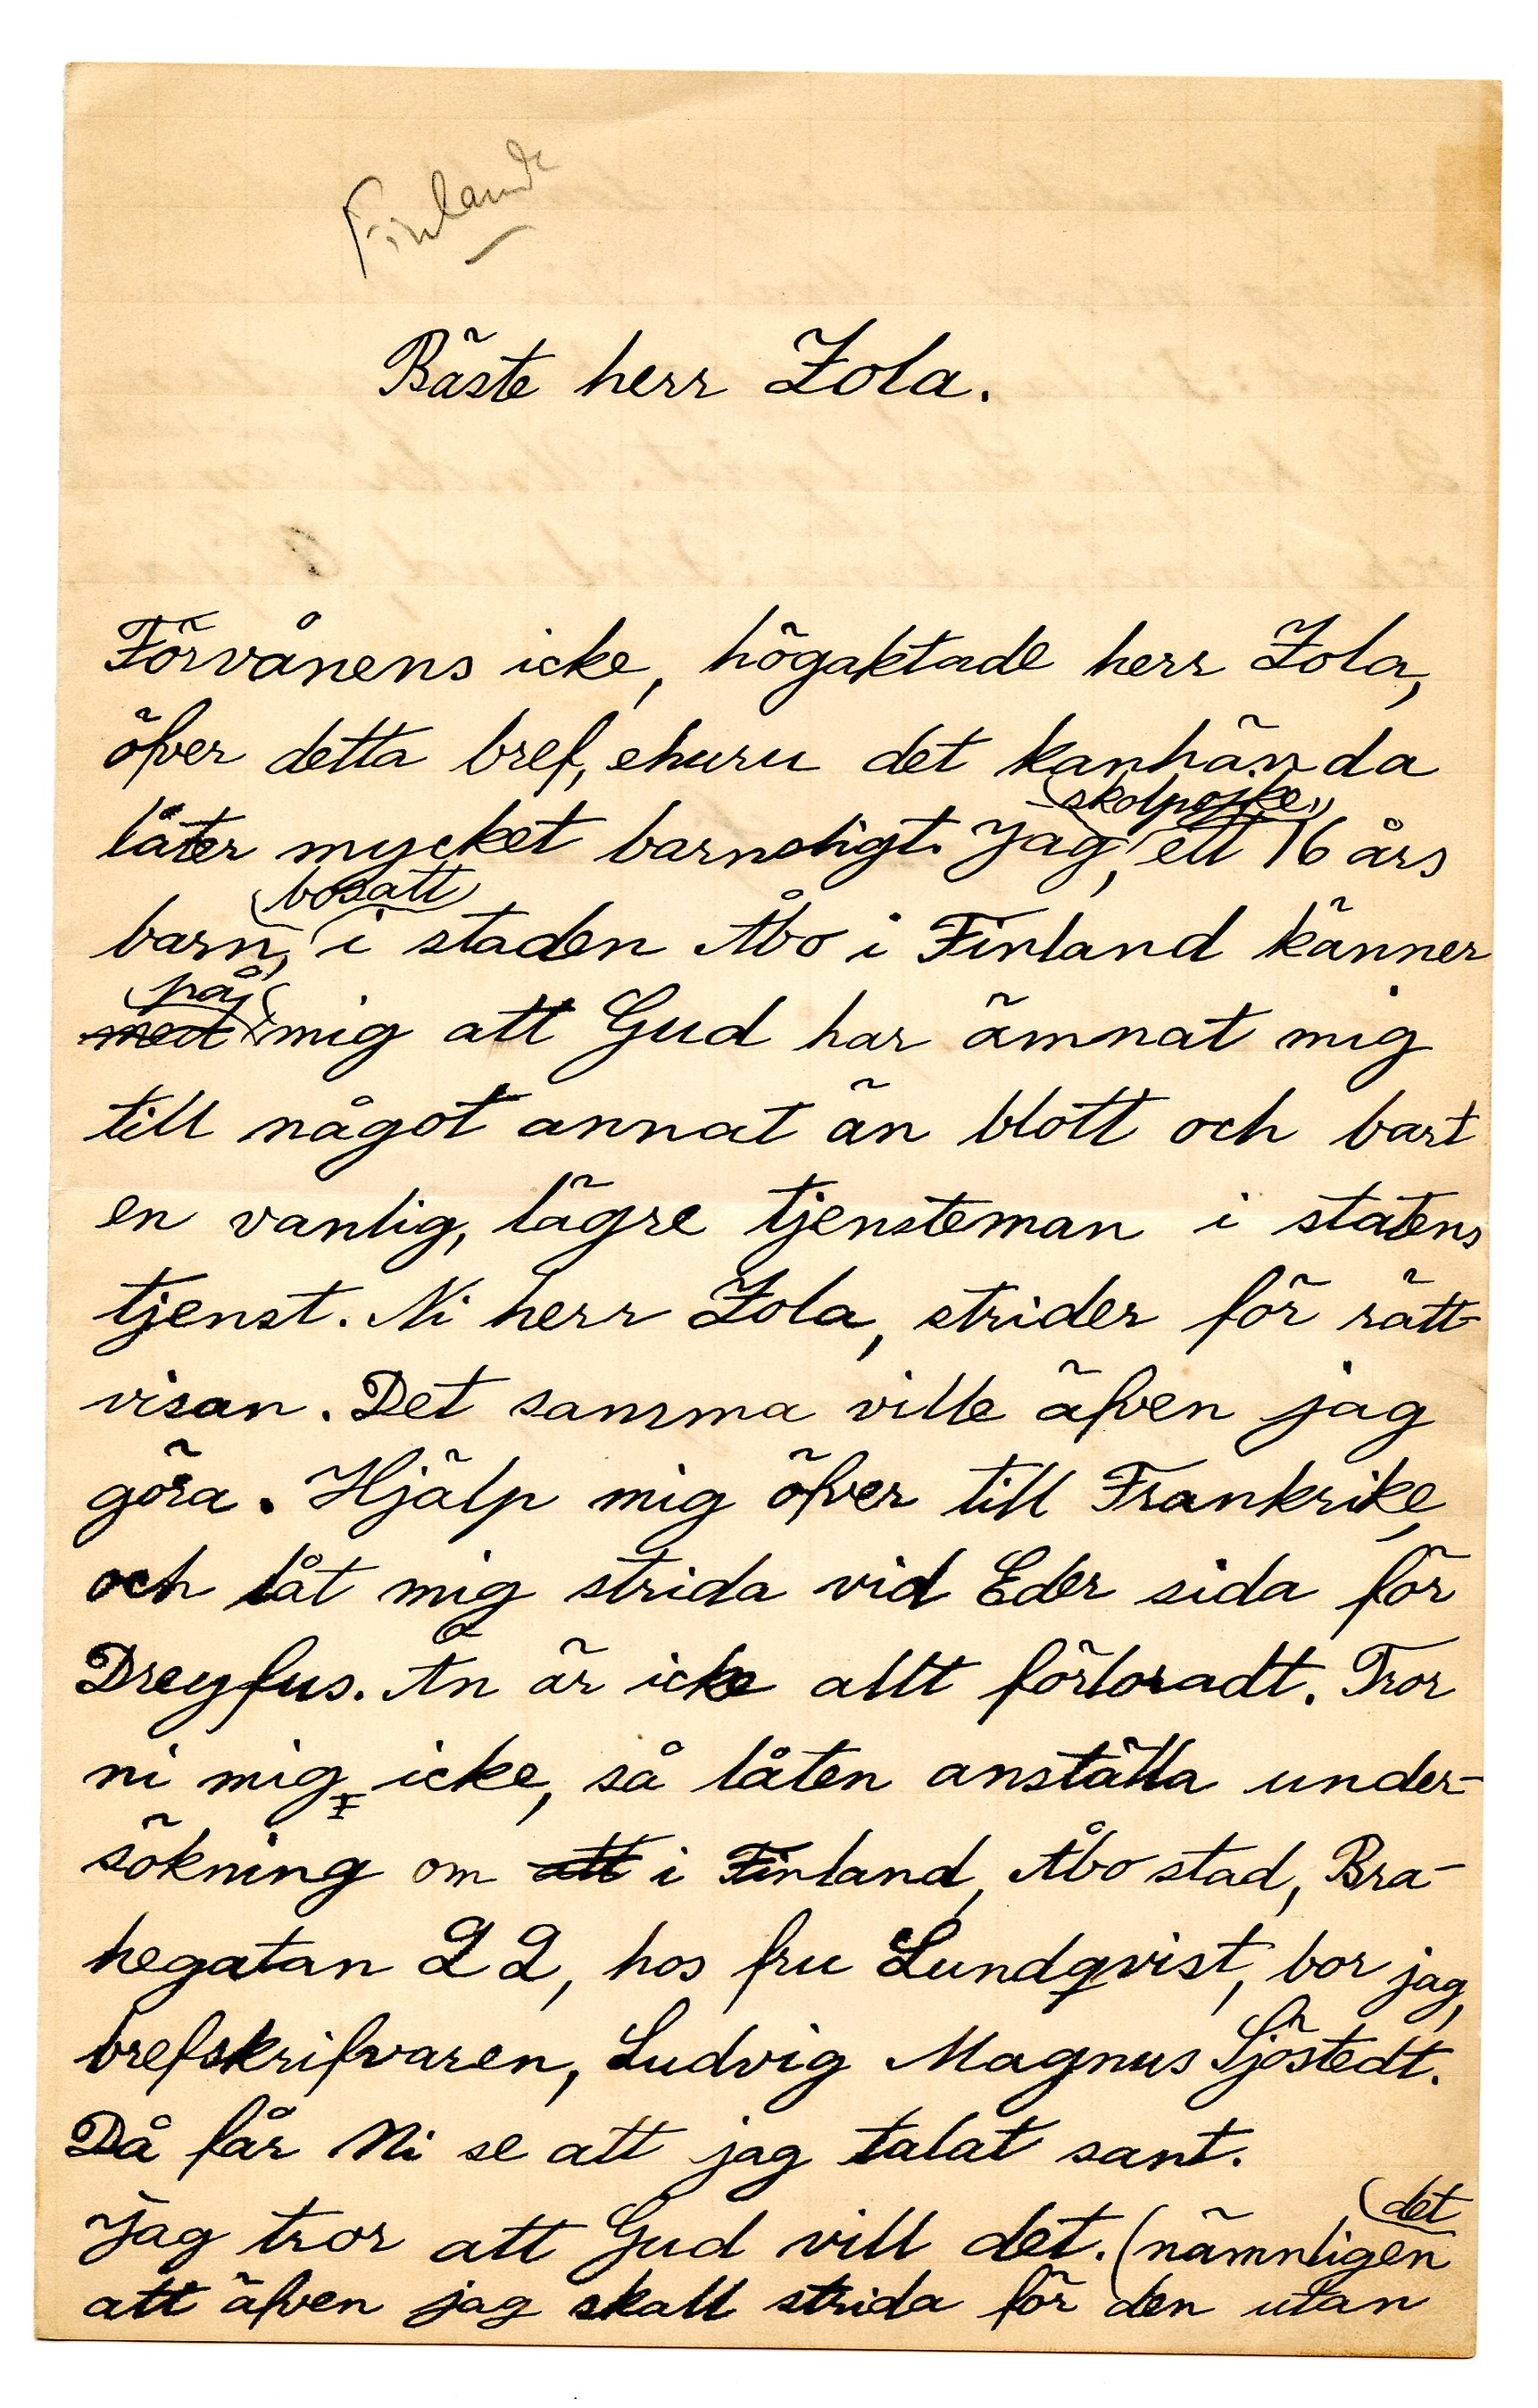 Finlande
Bäste herr Zola.
Förvånens icke, högaktade herr Zola,
öfver detta bref, ehuru det kanhända
skolpojke,
låter mycket barnsligt. Jag, ett 16 års
bosatt
barn, i staden Åbo i Finland känner
på
med mig att Gud har ämnat mig
till något annat än blott och bart
en vanlig, lägre tjensteman i statens
tjenst. Ni herr Zola, strider för rätt-
visan. Det samma ville äfven jag
göra. Hjälp mig öfver till Frankrike,
och låt mig strida vid Eder sida för
Dreyfus. Än är icke allt förloradt. Tror
ni mig icke, så låten anställa under-
sökning om att i Finland, Åbo stad, Bra-
hegatan 22, hos fru Lundqvist, bor jag,
brefskrifvaren, Ludvig Magnus Sjöstedt.
Då får Ni se att jag talat sant.
det
Jag tror att Gud vill det. (nämnligen
att äfven jag skall strida för den utan